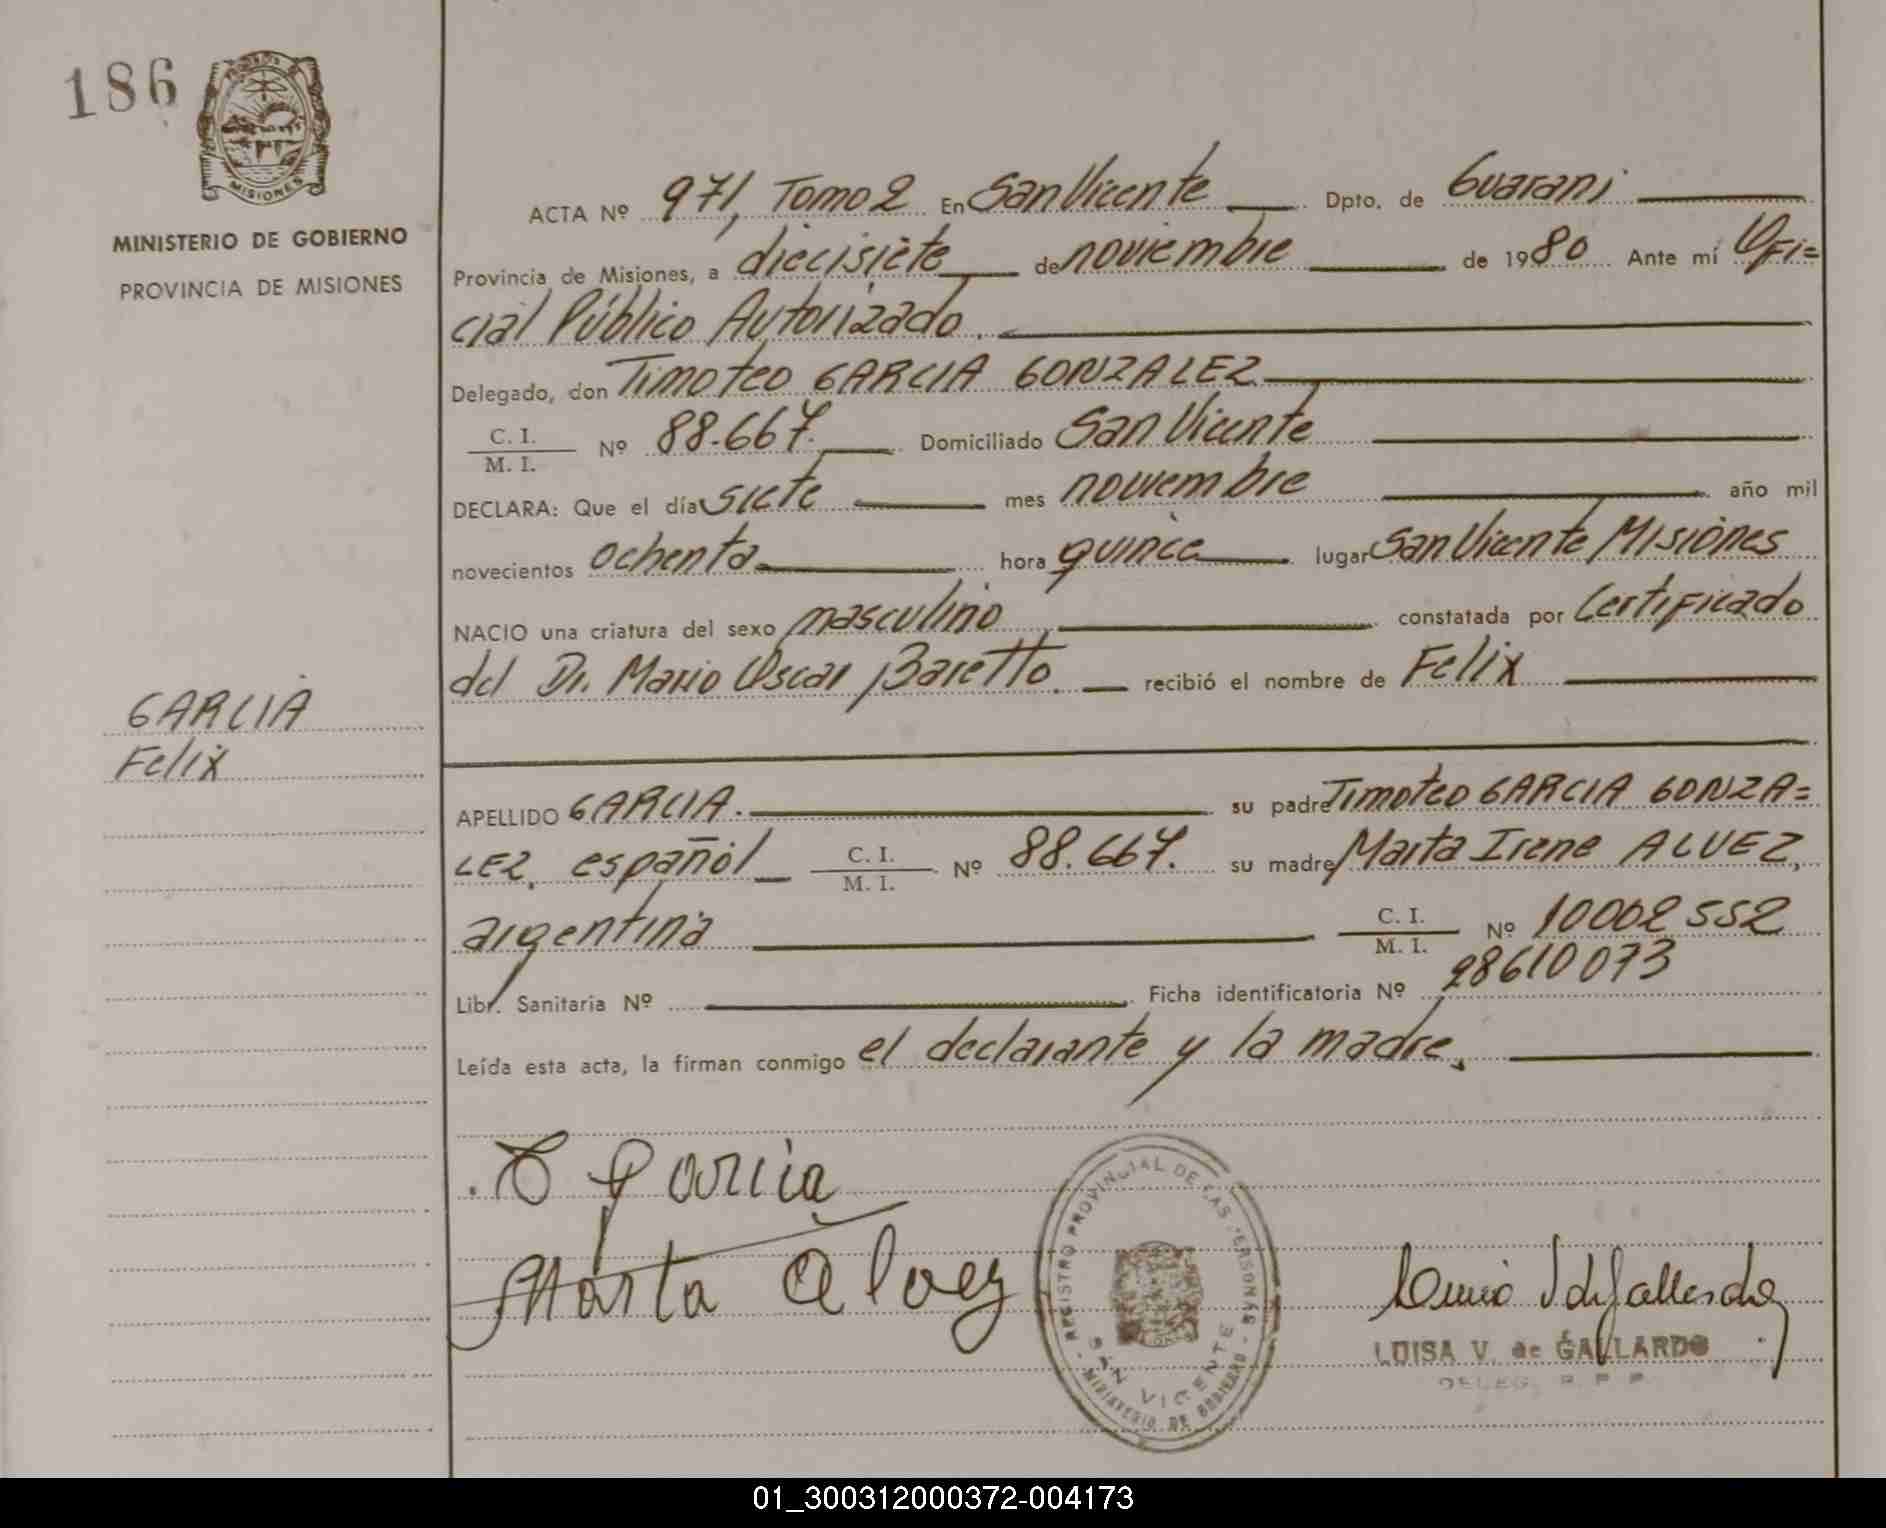 186
MISIONES
MINISTERIO DE GOBIERNO
PROVINCIA DE MISIONES
GARCIA
Felix
ACTA Nº 971, Tomo 2 En San Vicente Dpto. de Guarani
Provincia de Misiones, a diecisiete de noviembre de 1980 Ante mí Ofi=
cial Público Autorizado.
Delegado, don Timoteo GARCIA GONZALEZ
C. I.
M. I. Nº 88.667. Domiciliado San Vicente
DECLARA: Que el día siete mes noviembre año mil
novecientos ochenta hora quince lugar San Vicente Misiones
NACIO una criatura del sexo masculino constatada por Certificado
del Dr. Mario Oscar Baretto. recibió el nombre de Felix
APELLIDO GARCIA. su padre Timoteo GARCIA GONZA=
LEZ, español C. I.
M. I. Nº 88.667. su madre Marta Irene ALVEZ,
argentina C. I.
M. I. Nº 10002552
Libr. Sanitaria Nº Ficha identificatoria Nº 28610073
Leída esta acta, la firman conmigo el declarante y la madre.
T Garcia
Marta Alvez
REGISTRO PROVINCIAL DE LAS PERSONAS
SAN VICENTE
MINISTERIO DE GOBIERNO
LUISA V. de GALLARDO
DELEG. R. P. P.
01_300312000372-004173